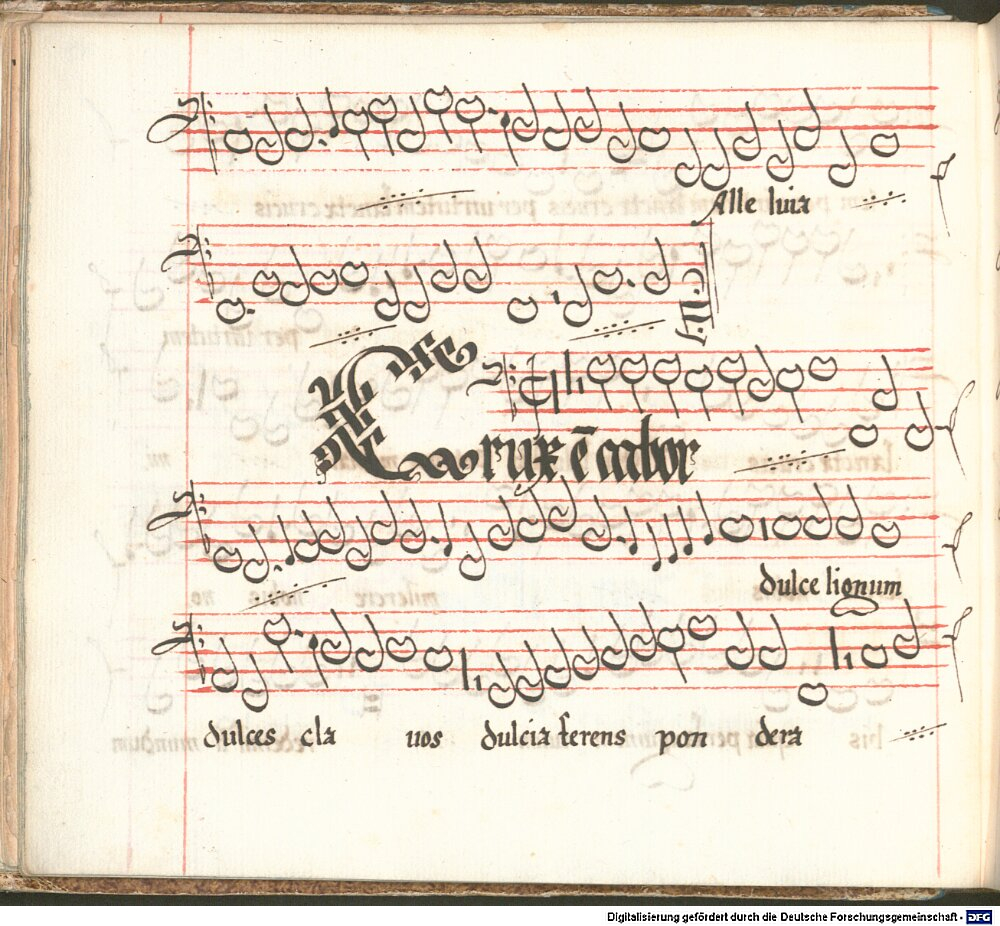 Alle luia
Crux ē arbor
dulce lignum
dulces cla uos dulcia ferens pon dera
Digitalisierung gefördert durch die Deutsche Forschungsgemeinschaft - DFG